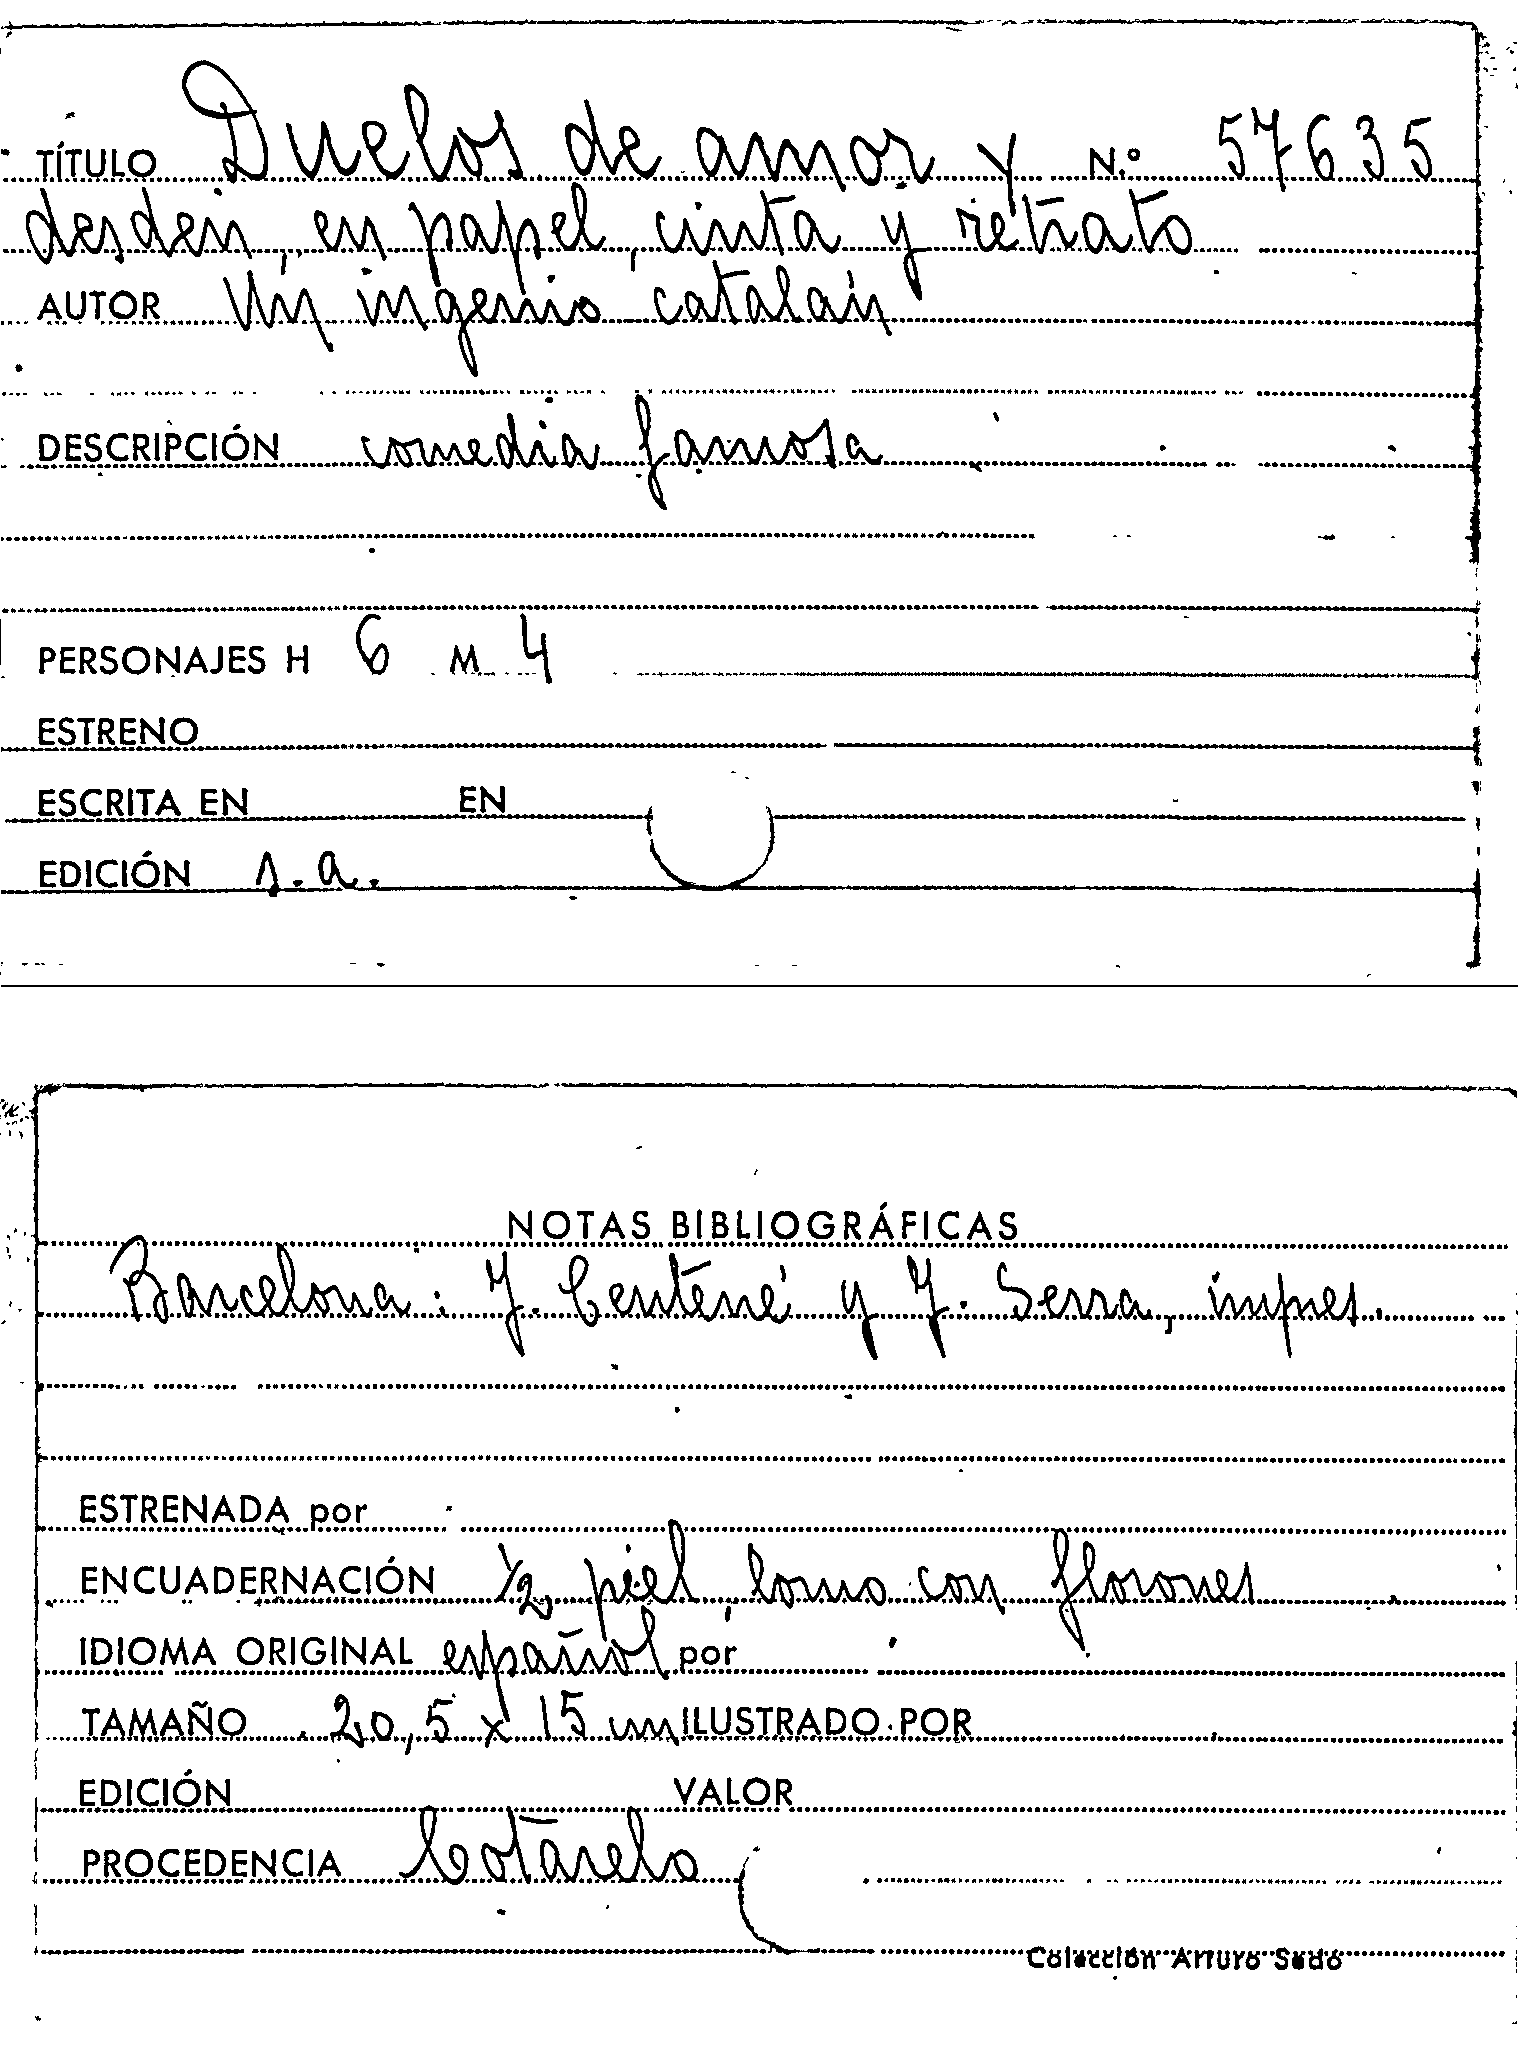 TÍTULO Duelos de amor y N.º 57635
desdén, en papel, cinta y retrato
AUTOR Un ingenio catalán
DESCRIPCIÓN comedia famosa
PERSONAJES H 6 M 4
ESTRENO
ESCRITA EN EN
EDICIÓN s.a.
NOTAS BIBLIOGRÁFICAS
Barcelona: J. Centené y J. Serra, impres.
ESTRENADA por
ENCUADERNACIÓN 1/2 piel, lomo con florones
IDIOMA ORIGINAL español por
TAMAÑO 20,5 x 15 cm ILUSTRADO POR
EDICIÓN VALOR
PROCEDENCIA Cotarelo
Colección Arturo Sedó